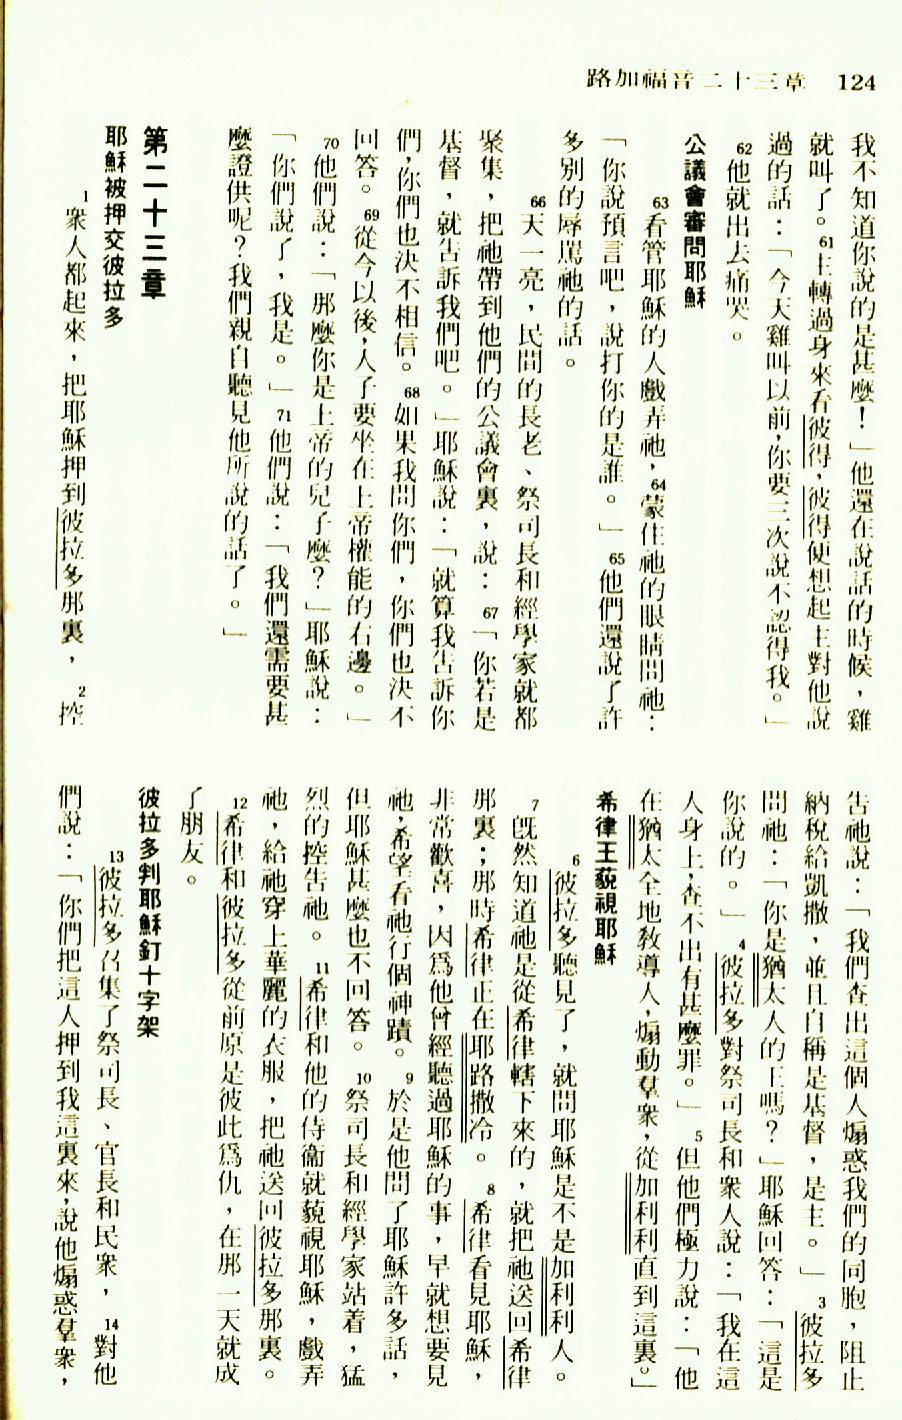 路加福音二十三章　124
我不知道你說的是甚麼！」他還在說話的時候，雞
就叫了。61主轉過身來看彼得，彼得便想起主對他說
過的話：「今天雞叫以前，你要三次說不認得我。」
62他就出去痛哭。
公議會審問耶穌
63看管耶穌的人戲弄祂，64蒙住祂的眼睛問祂：
「你說預言吧，說打你的是誰。」65他們還說了許
多别的辱罵祂的話。
66天一亮，民間的長老、祭司長和經學家就都
聚集，把祂帶到他們的公議會裏，說：67「你若是
基督，就吿訴我們吧。」耶穌說：「就算我吿訴你
們，你們也決不相信。68如果我問你們，你們也決不
回答。69從今以後，人子要坐在上帝權能的右邊。」
70他們說：「那麼你是上帝的兒子麼？」耶穌說：
「你們說了，我是。」71他們說：「我們還需要甚
麼證供呢？我們親自聽見他所說的話了。」
第二十三章
耶穌被押交彼拉多
1衆人都起來，把耶穌押到彼拉多那裏，2控
吿祂說：「我們查出這個人煽惑我們的同胞，阻止
納稅給凱撒，並且自稱是基督，是主。」3彼拉多
問祂：「你是猶太人的王嗎？」耶穌回答：「這是
你說的。」4彼拉多對祭司長和衆人說：「我在這
人身上，查不出有甚麼罪。」5但他們極力說：「他
在猶太全地敎導人，煽動羣衆，從加利利直到這裏。」
希律王藐視耶穌
6彼拉多聽見了，就問耶穌是不是加利利人。
7旣然知道祂是從希律轄下來的，就把祂送回希律
那裏；那時希律正在耶路撒冷。8希律看見耶穌，
非常歡喜，因爲他曾經聽過耶穌的事，早就想要見
祂，希望看祂行個神蹟。9於是他問了耶穌許多話，
但耶穌甚麼也不回答。10祭司長和經學家站着，猛
烈的控吿祂。11希律和他的侍衞就藐視耶穌，戲弄
祂，給祂穿上華麗的衣服，把祂送回彼拉多那裏。
12希律和彼拉多從前原是彼此爲仇，在那一天就成
了朋友。
彼拉多判耶穌釘十字架
13彼拉多召集了祭司長、官長和民衆，14對他
們說：「你們把這人押到我這裏來，說他煽惑羣衆，